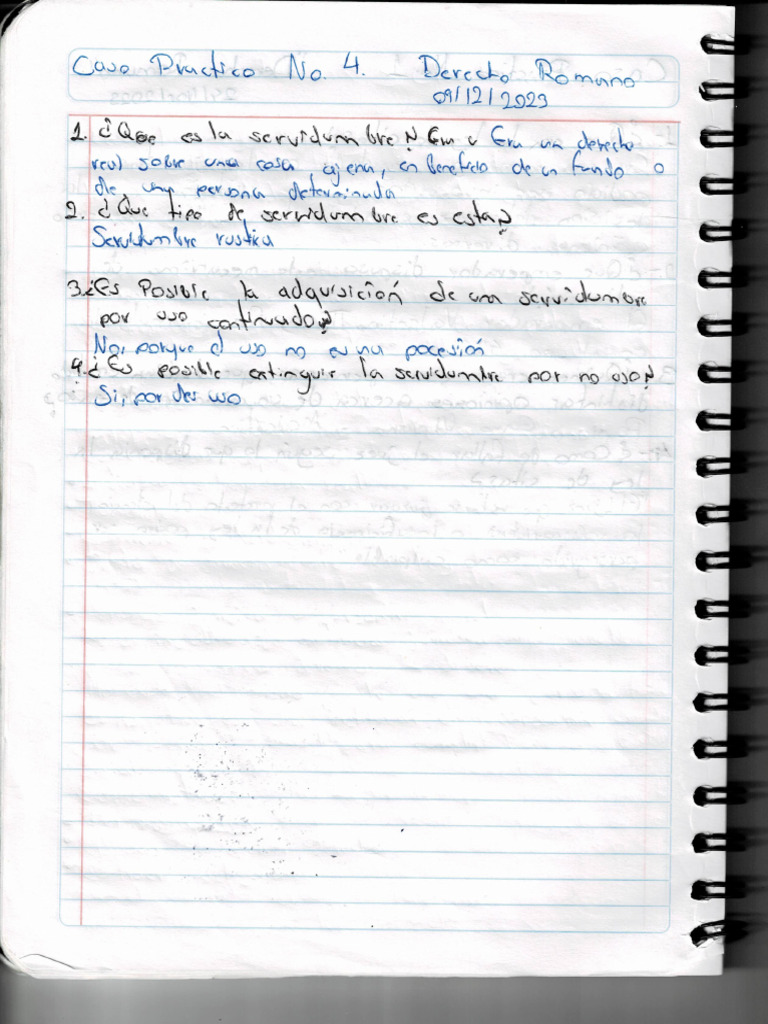 Caso Practico No. 4. Derecho Romano
09/12/2023
1. ¿Que es la servidumbre? Era u Era un derecho
real sobre una cosa ajena, en beneficio de un fundo o
de una persona determinada
2. ¿Que tipo de servidumbre es esta?
Servidumbre rustica
3.¿Es Posible la adquisición de una servidumbre
por uso continuado?
No, porque el uso no es una pocesión
4.¿Es posible extinguir la servidumbre por no uso?
Si, por des uso